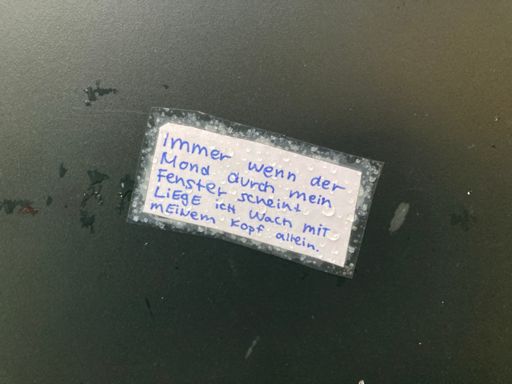 Immer wenn der
Mond durch mein
Fenster scheint
LiEGE icH Wach mit
mEiNEM Kopf allein.